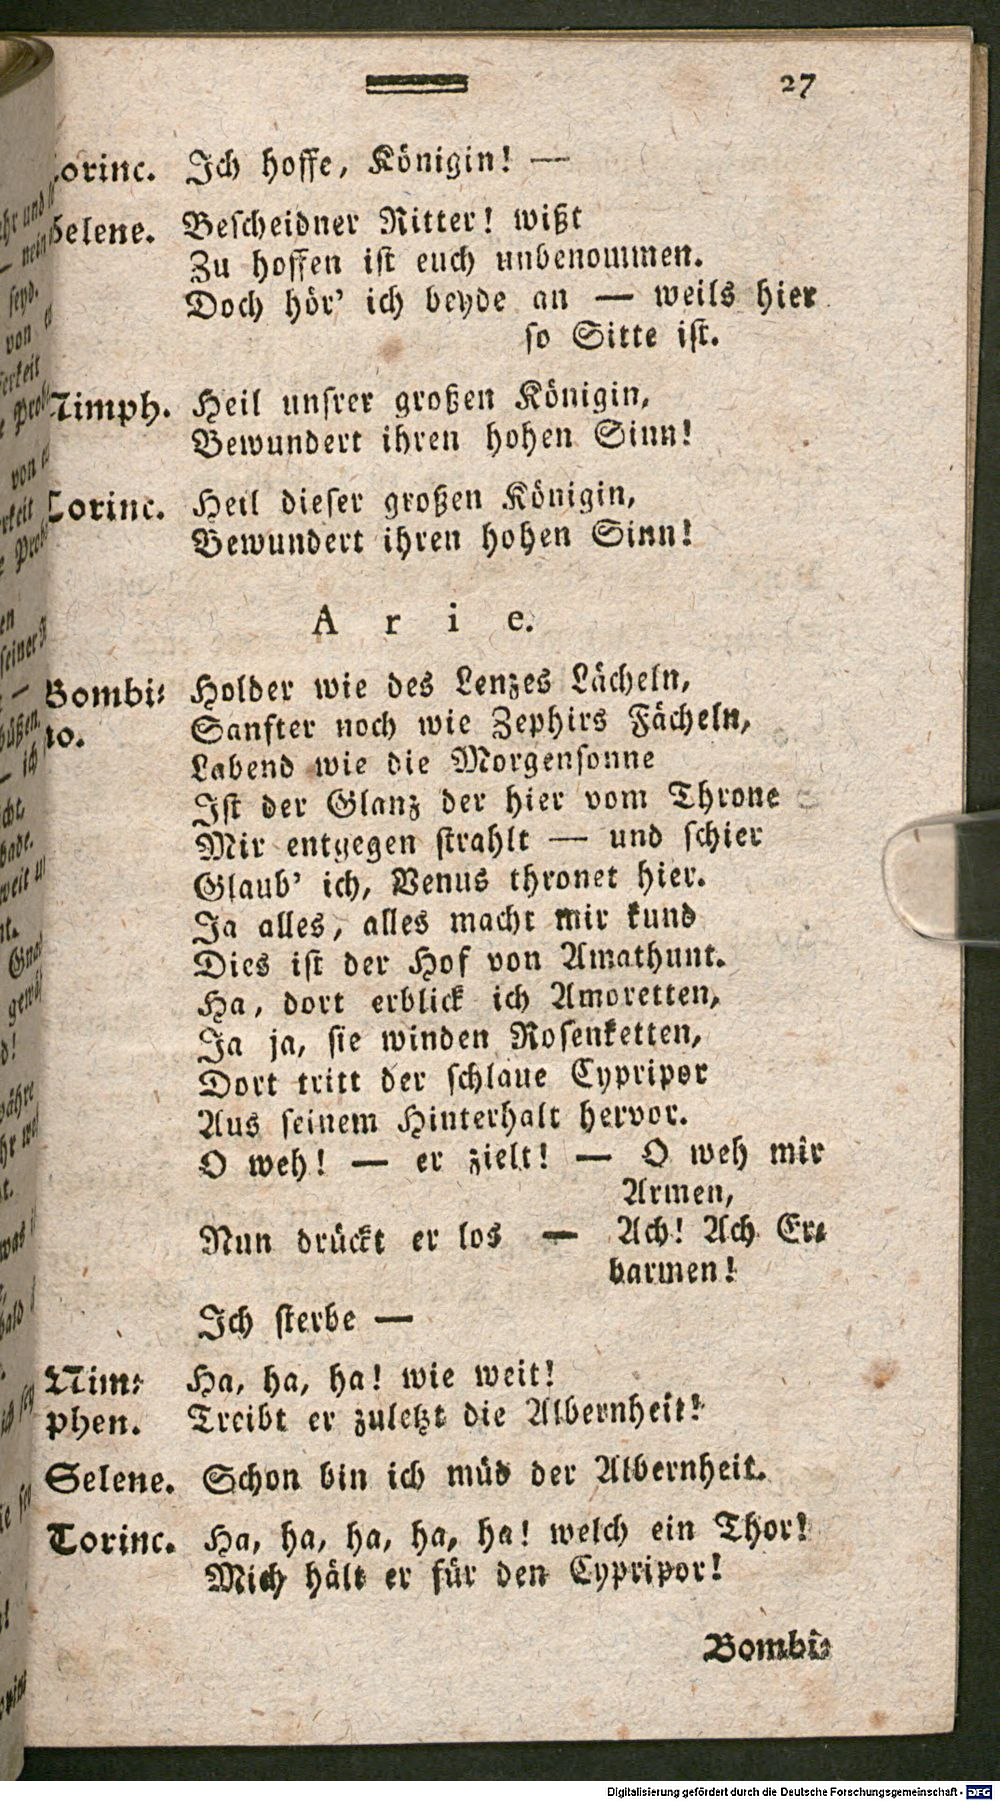 27
Torinc. Ich hoffe, Königin! —
Selene. Bescheidner Ritter! wißt
Zu hoffen ist euch unbenommen.
Doch hör' ich beyde an — weils hier
so Sitte ist.
Nimph. Heil unsrer großen Königin,
Bewundert ihren hohen Sinn!
Torinc. Heil dieser großen Königin,
Bewundert ihren hohen Sinn!
Arie.
Bombi- Holder wie des Lenzes Lächeln,
to. Sanfter noch wie Zephirs Fächeln,
Labend wie die Morgensonne
Ist der Glanz der hier vom Throne
Mir entgegen strahlt — und schier
Glaub' ich, Venus thronet hier.
Ja alles, alles macht mir kund
Dies ist der Hof von Amathunt.
Ha, dort erblick ich Amoretten,
Ja ja, sie winden Rosenketten,
Dort tritt der schlaue Cypripor
Aus seinem Hinterhalt hervor.
O weh! — er zielt! — O weh mir
Armen,
Nun drückt er los — Ach! Ach Er-
barmen!
Ich sterbe —
Nim- Ha, ha, ha! wie weit!
phen. Treibt er zuletzt die Albernheit!
Selene. Schon bin ich müd der Albernheit.
Torinc. Ha, ha, ha, ha, ha! welch ein Thor!
Mich hält er für den Cypripor!
Bombi-
Digitalisierung gefördert durch die Deutsche Forschungsgemeinschaft - DFG